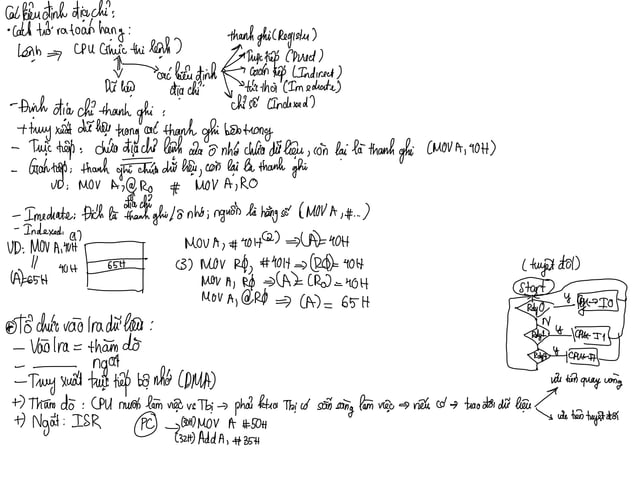 Các kiểu định địa chỉ:
• Cách trỏ ra toán hạng:
Lệnh ⇒ CPU (thực thi lệnh)
Dữ liệu
các kiểu định địa chỉ
thanh ghi (Register)
Trực tiếp (Direct)
Gián tiếp (Indirect)
tức thời (Imediate)
chỉ số (Indexed)
- Định địa chỉ thanh ghi:
+ truy xuất dữ liệu trong các thanh ghi bên trong
- Trực tiếp: chứa địa chỉ lệnh của ô nhớ chứa dữ liệu, còn lại là thanh ghi (MOV A, 40H)
- Gián tiếp: thanh ghi chứa dữ liệu, còn lại là thanh ghi
địa chỉ
VD: MOV A, @R0 ≠ MOV A, R0
- Imediate: Đích là thanh ghi/ô nhớ; nguồn là hằng số (MOV A, #...)
- Indexed
(1)
VD: MOV A, 40H
||
(A)=65H
40H
65H
MOV A, #40H (2) ⇒ (A)=40H
(3) MOV R0, #40H ⇒ (R0)=40H
MOV A, R0 ⇒ (A)=(R0)=40H
MOV A, @R0 ⇒ (A)=65H
(tuyệt đối)
Start
Rdy0
y
CPU↔I0
N
Rdy1
y
CPU↔I1
y
Tổ chức vào/ra dữ liệu:
- Vào/ra = thăm dò
- ——— ngắt
- Truy xuất trực tiếp bộ nhớ (DMA)
+) Thăm dò: CPU muốn làm việc vs Tbị → phải ktra Tbị có sẵn sàng làm việc ⇒ nếu có → trao đổi dữ liệu
ưu tiên quay vòng
ưu tiên tuyệt đối
+) Ngắt: ISR
PC
→ (30H) MOV A #50H
(32H) Add A, #35H